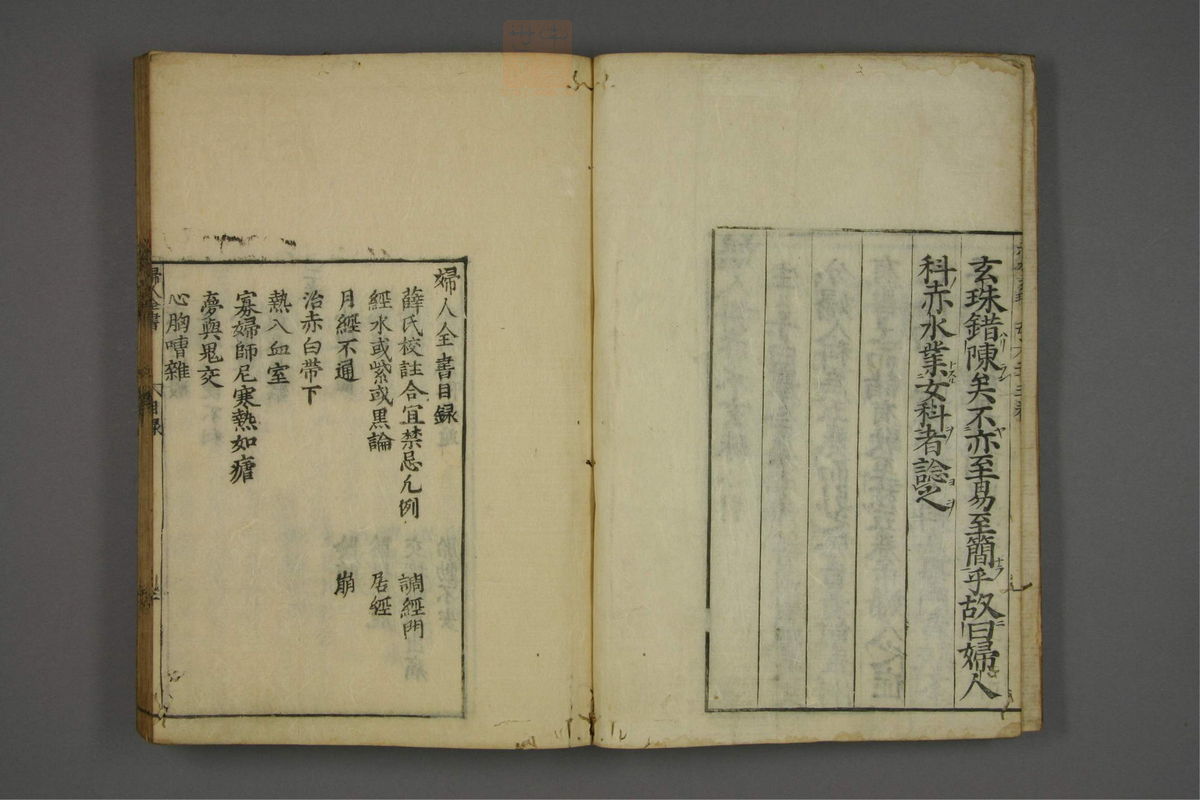 玄珠錯陳矣不亦至易至簡乎故曰婦人
科赤水業女科者諗之
婦人全書目録
薛氏校註合宜禁忌凡例 調經門
經水或紫或黒論 居經
月經不通 崩
治赤白帶下
熱入血室
寡婦師尼寒熱如瘧
夢與鬼交
心胸嘈雜
婦人全書 目録